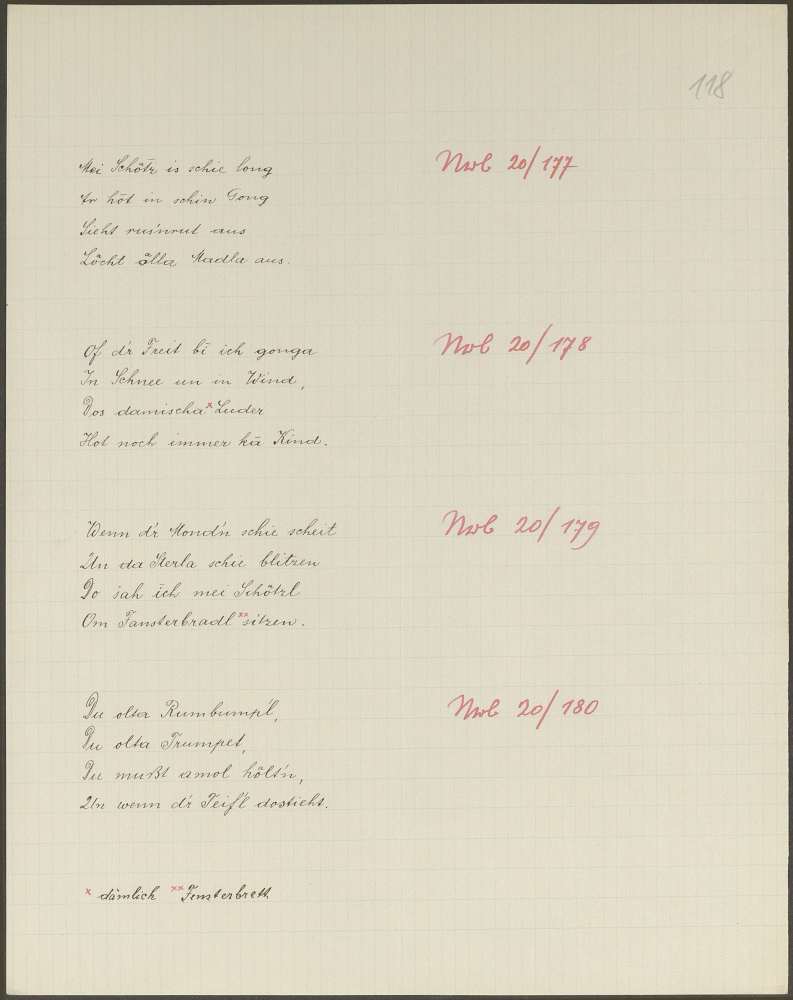 118
Mei Schötz is schie long
Er höt in schin Gong
Sieht rui'nrut aus
Löcht ölla Madla aus.
Nwb 20/177
Of d'r Freit bī ich gonga
In Schnee un in Wind,
Dos damischa x Luder
Hot noch immer kā Kind.
Nwb 20/178
Wenn d'r Mond'n schie scheit
Un da Sterla schie blitzen
Do sah ich mei Schötzl
Om Fansterbradl xx sitzen.
Nwb 20/179
Du olta Rumbump'l,
Du olta Trumpet,
Du mußt amol hölt'n,
Un wenn d'r Teif'l dostieht.
Nwb 20/180
x dämlich xx Fensterbrett